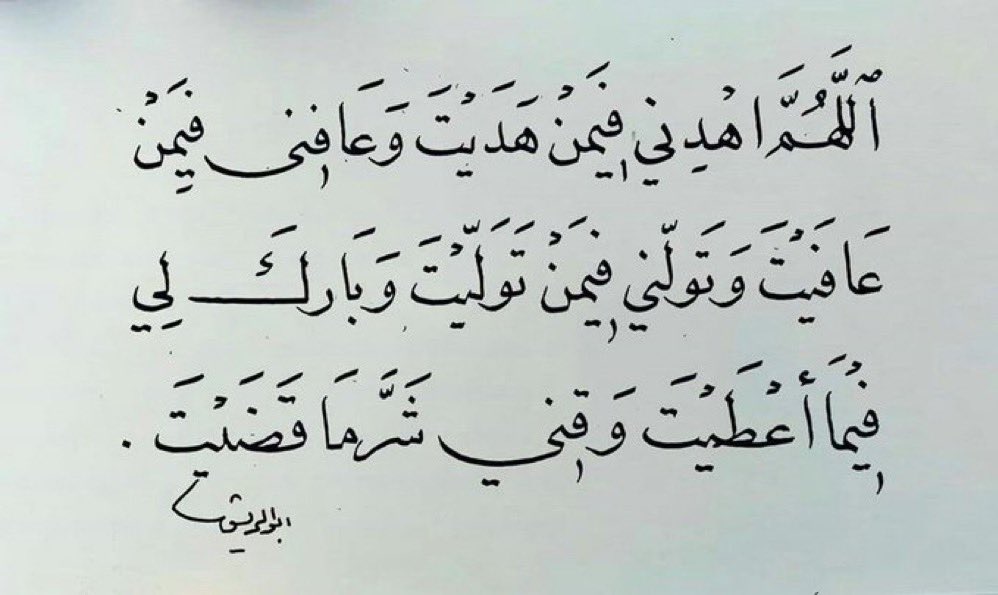 ٱللَّهُمَّ اهْدِنِي فِيمَنْ هَدَيْتَ وَعَافِنِي فِيمَنْ
عَافَيْتَ وَتَوَلَّنِي فِيمَنْ تَوَلَّيْتَ وَبَارِكَ لِي
فِيمَا أَعْطَيْتَ وَقِنِي شَرَّ مَا قَضَيْتَ .